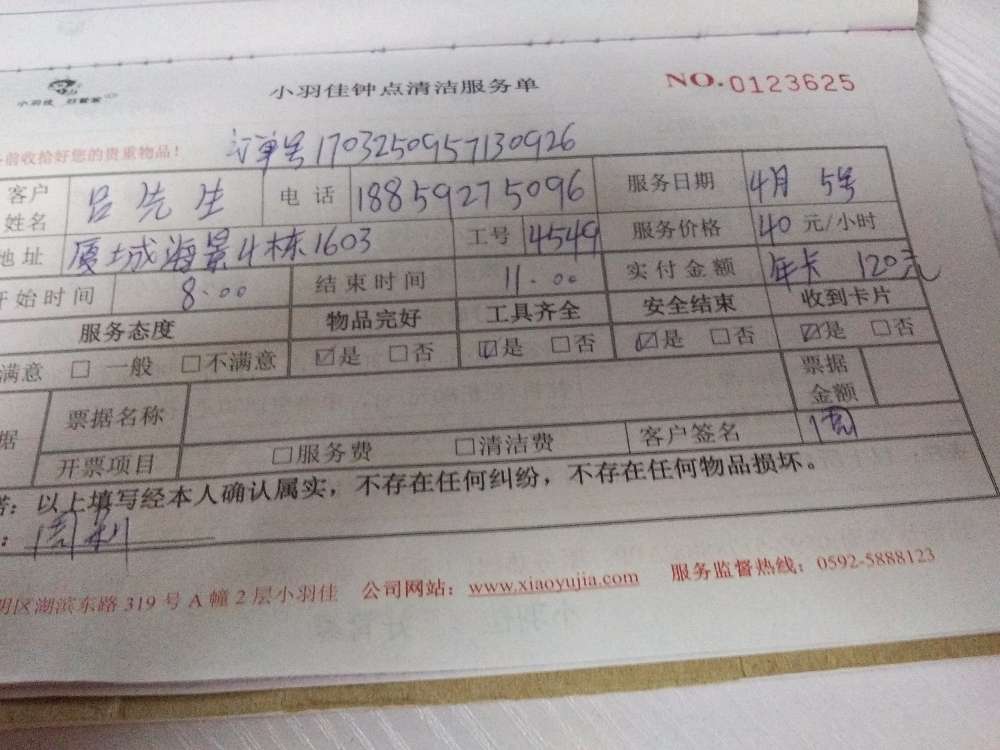 小羽佳 好管家
小羽佳钟点清洁服务单
NO.0123625
前收拾好您的贵重物品！
订单号1703250957130926
客户姓名 吕先生 电话 18859275096 服务日期 4月5号
地址 厦城海景4栋1603 工号 4549 服务价格 40元/小时
开始时间 8.00 结束时间 11.00 实付金额 年卡 120元
服务态度 物品完好 工具齐全 安全结束 收到卡片
满意 □ 一般 □不满意 ☑是 □否 ☑是 □否 ☑是 □否 ☑是 □否
据 票据名称 票据金额
开票项目 □服务费 □清洁费 客户签名
：以上填写经本人确认属实，不存在任何纠纷，不存在任何物品损坏。
：周利
明区湖滨东路319号A幢2层小羽佳 公司网站：www.xiaoyujia.com 服务监督热线：0592-5888123